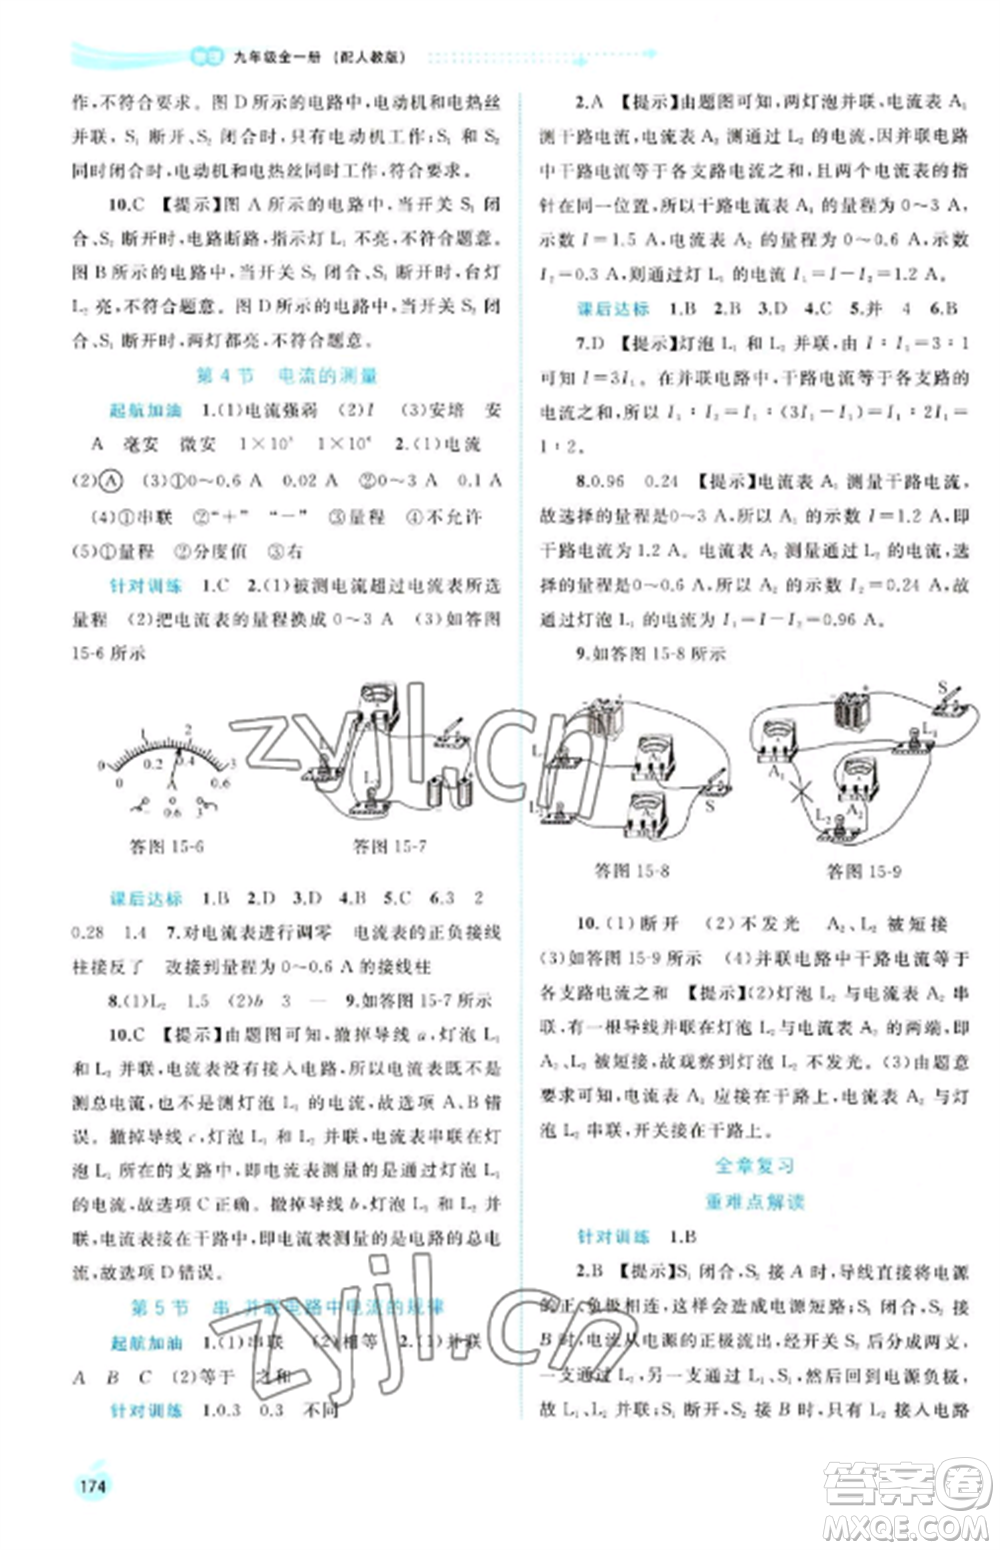 物理 九年级全一册 (配人教版)
作,不符合要求。图 D 所示的电路中,电动机和电热丝
并联,S₁ 断开、S₂ 闭合时,只有电动机工作;S₁ 和 S₂
同时闭合时,电动机和电热丝同时工作,符合要求。
10.C 【提示】图 A 所示的电路中,当开关 S₁ 闭
合、S₂ 断开时,电路断路,指示灯 L₁ 不亮,不符合题意。
图 B 所示的电路中,当开关 S₂ 闭合、S₁ 断开时,台灯
L₂ 亮,不符合题意。图 D 所示的电路中,当开关 S₂ 闭
合、S₁ 断开时,两灯都亮,不符合题意。
第 4 节 电流的测量
起航加油 1.(1)电流强弱 (2)I (3)安培 安
A 毫安 微安 1×10³ 1×10⁶ 2.(1)电流
(2)Ⓐ (3)①0~0.6 A 0.02 A ②0~3 A 0.1 A
(4)①串联 ②“+” “-” ③量程 ④不允许
(5)①量程 ②分度值 ③右
针对训练 1.C 2.(1)被测电流超过电流表所选
量程 (2)把电流表的量程换成 0~3 A (3)如答图
15-6 所示
0 1 2 3
0 0.2 0.4 0.6
A
- 0.6 3
答图 15-6
L₂
答图 15-7
课后达标 1.B 2.D 3.D 4.B 5.C 6.3 2
0.28 1.4 7.对电流表进行调零 电流表的正负接线
柱接反了 改接到量程为 0~0.6 A 的接线柱
8.(1)L₂ 1.5 (2)b 3 — 9.如答图 15-7 所示
10.C 【提示】由题图可知,撤掉导线 a,灯泡 L₁
和 L₂ 并联,电流表没有接入电路,所以电流表既不能
测总电流,也不是测灯泡 L₁ 的电流,故选项 A、B 错
误。撤掉导线 c,灯泡 L₁ 和 L₂ 并联,电流表串联在灯
泡 L₁ 所在的支路中,即电流表测量的是通过灯泡 L₁
的电流,故选项 C 正确。撤掉导线 b,灯泡 L₁ 和 L₂ 并
联,电流表接在干路中,即电流表测量的是电路的总电
流,故选项 D 错误。
第 5 节 串、并联电路中电流的规律
起航加油 1.(1)串联 (2)相等 2.(1)并联
A B C (2)等于 之和
针对训练 1.0.3 0.3 不同
174
2.A 【提示】由题图可知,两灯泡并联,电流表 A₁
测干路电流,电流表 A₂ 测通过 L₂ 的电流,因并联电路
中干路电流等于各支路电流之和,且两个电流表的指
针在同一位置,所以干路电流表 A₁ 的量程为 0~3 A,
示数 I=1.5 A,电流表 A₂ 的量程为 0~0.6 A,示数
I₂=0.3 A,则通过灯 L₁ 的电流 I₁=I-I₂=1.2 A。
课后达标 1.B 2.B 3.D 4.C 5.并 4 6.B
7.D 【提示】灯泡 L₁ 和 L₂ 并联,由 I∶I₁=3∶1
可得,I=3I₁。在并联电路中,干路电流等于各支路
电流之和,所以 I₁∶I₂=I₁∶(3I₁-I₁)=I₁∶2I₁=
1∶2。
8.0.96 0.24 【提示】电流表 A₁ 测量干路电流,
故选择的量程是0~3 A,所以 A₁ 的示数 I=1.2 A,即
干路电流为 1.2 A。电流表 A₂ 测量通过 L₂ 的电流,选
择的量程是 0~0.6 A,所以 A₂ 的示数 I₂=0.24 A,故
通过灯泡 L₁ 的电流为 I₁=I-I₂=0.96 A。
9.如答图 15-8 所示
A₁
L₁
A₂
L₂
S
答图 15-8
S
A₁
L₁
L₂
A₂
答图 15-9
10.(1)断开 (2)不发光 A₂、L₂ 被短接
(3)如答图 15-9 所示 (4)并联电路中干路电流等于
各支路电流之和 【提示】(2)灯泡 L₂ 与电流表 A₂ 串
联,有一根导线并联在灯泡 L₂ 与电流表 A₂ 的两端,即
L₂ 被短接,故观察到灯泡 L₂ 不发光。(3)由题意要
求可知,电流表 A₁ 应接在干路上,电流表 A₂ 与灯
泡 L₂ 串联,开关接在干路上。
全章复习
重难点解读
针对训练 1.B
2.B 【提示】S₁ 闭合、S₂ 接 A 时,导线直接将电源
的正、负极相连,造成电源短路,故 A 错误;S₁ 闭合、S₂
接 B 时,电流从电源的正极流出,经开关 S₂ 后分两支,
一支通过灯 L₂,一支通过灯 L₁、S₁,然后回到电源负极,
故 L₁、L₂ 并联,故 B 正确;S₁ 断开,S₂ 接 B 时,只有 L₂ 接入电路
zyjl.cn
zyjl.cn
答案圈
MXQE.COM